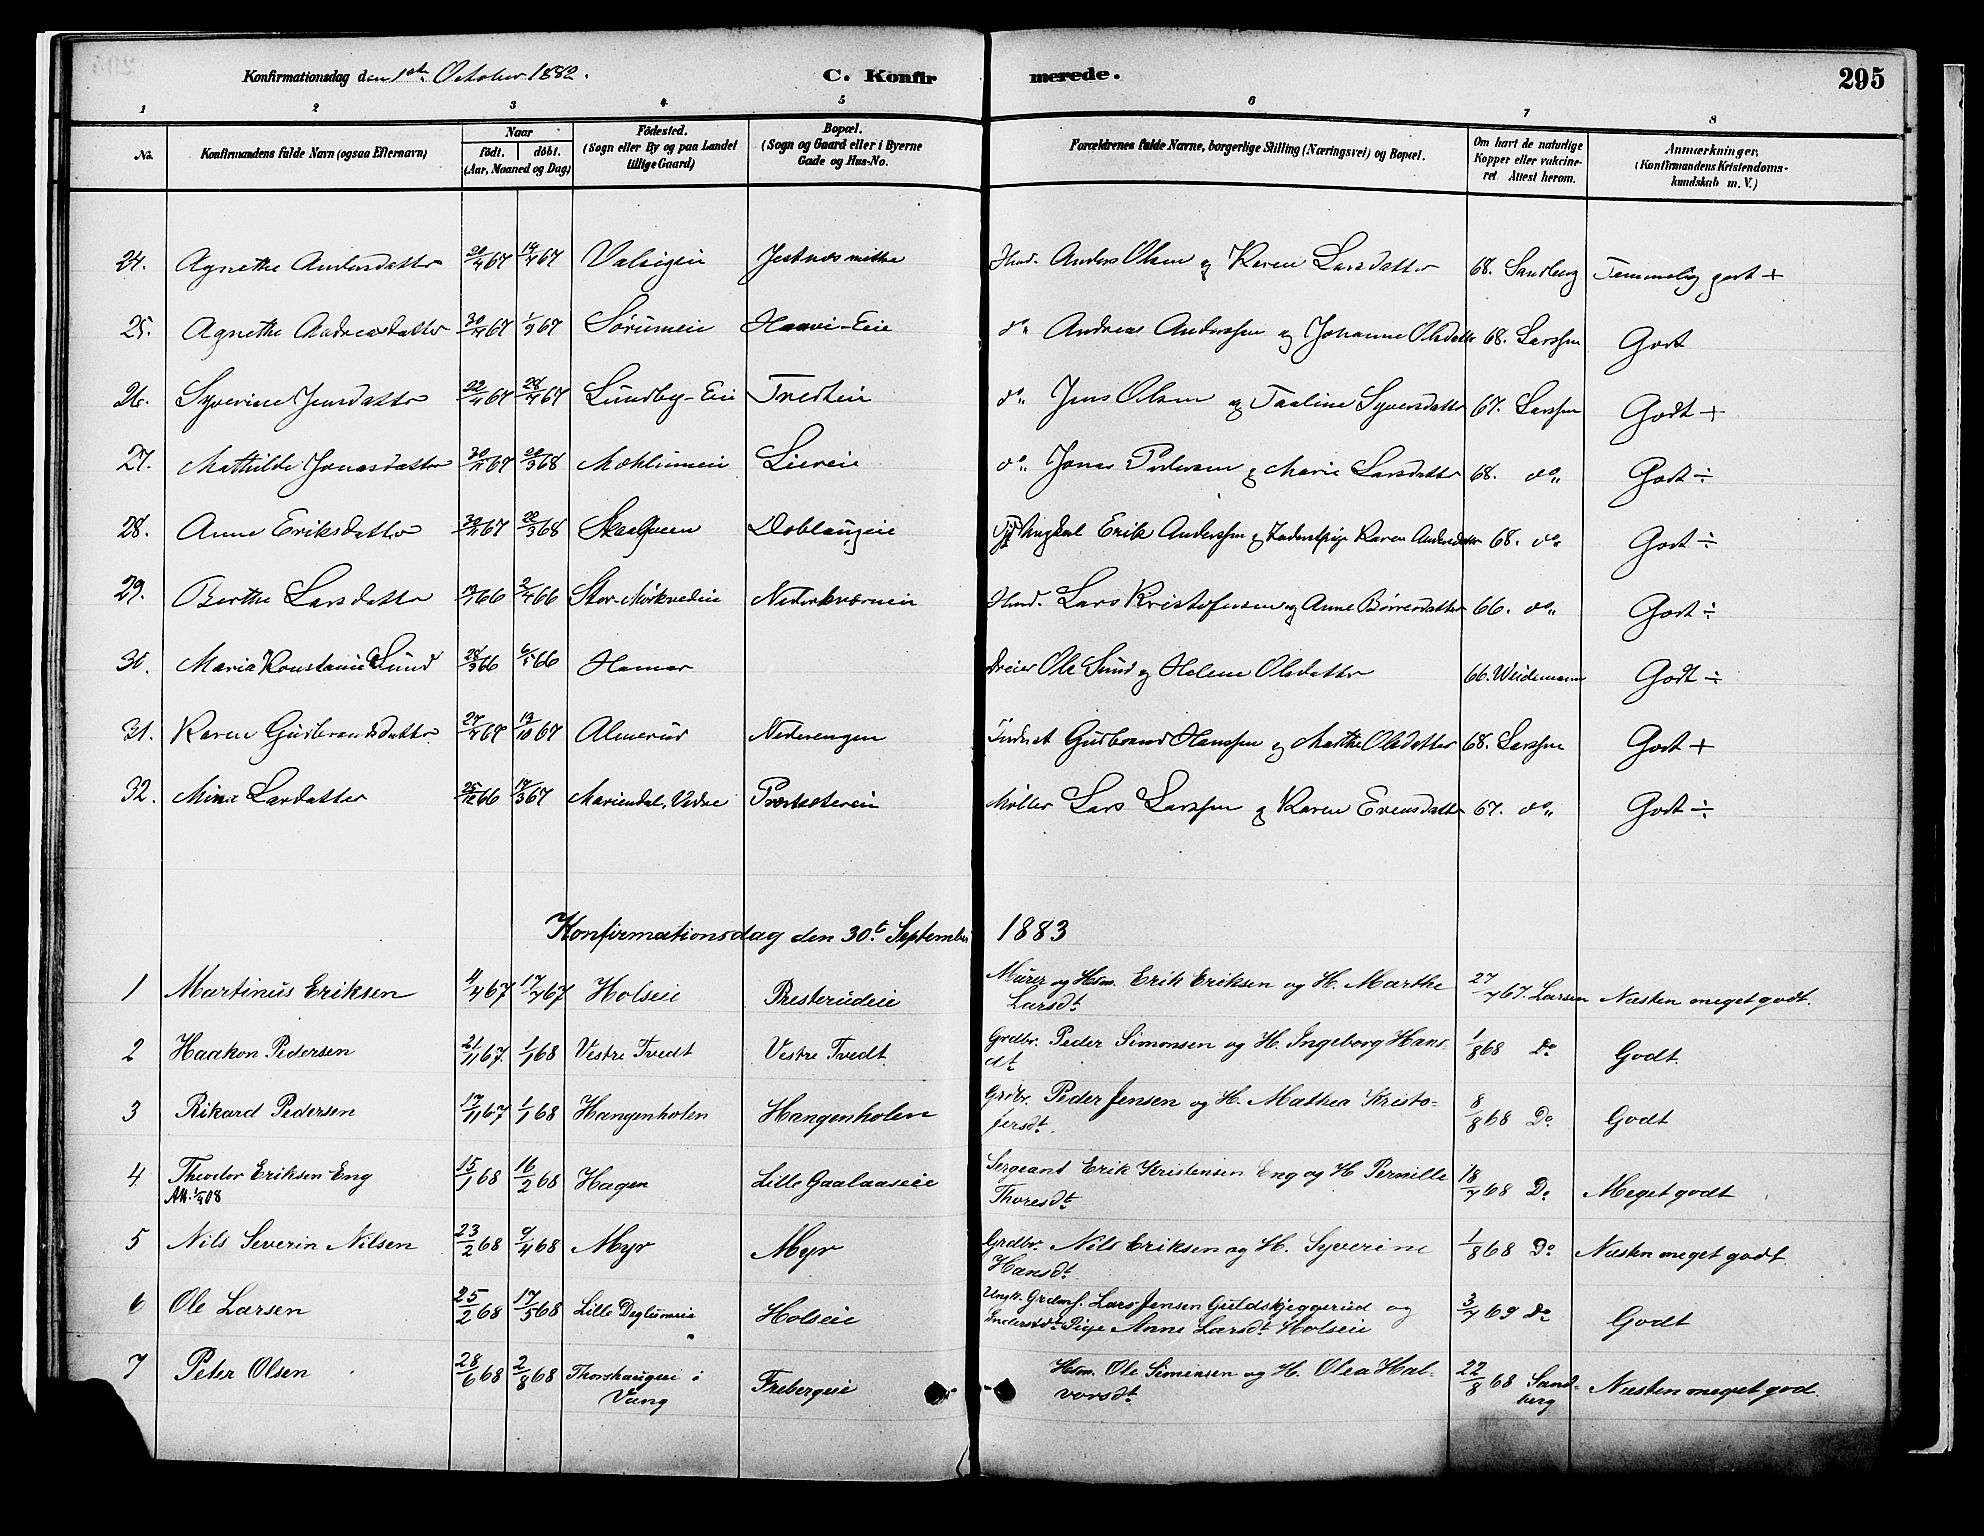 Konfirmationsdag den 1ste October 1882.
C. Konfirmerede.
295
1 2 3 4 5 6 7 8
No.
Konfirmandens fulde Navn (ogsaa Efternavn)
Naar
födt. döbt.
(Aar, Maaned og Dag)
Födested.
(Sogn eller By og paa Landet
tillige Gaard)
Bopæl.
(Sogn og Gaard eller i Byerne
Gade og Hus-No.
Forældrenes fulde Navne, borgerlige Stilling (Næringsvei) og Bopæl.
Om havt de naturlige
Kopper eller vakcine-
ret Attest herom.
Anmærkninger,
(Konfirmandens Kristendoms-
kundskab m. V.)
24. Agnethe Andersdatter 20/4 67 14/7 67 Valsigeie Jestnes mitte Hmd. Anders Olsen og Karen Larsdatter 68. Sandberg Temmelig godt +
25. Agnethe Andreasdatter 67 1/9 67 Sörumeie Haavi-Eie do„ Andreas Anderssen og Johanne Olsdatter 68. Larssen Godt
26. Syverine Jensdatter 22/4 67 28/7 67 Lundby-Eie Tredteie do„ Jens Olsen og Taaline Syversdatter 67. Larssen Godt +
27. Mathilde Jonasdatter 30/11 67 20/3 68 Mohlumeie Liereie do„ Jonas Pedersen og Marie Larsdatter 68. do„ Godt ÷
28. Anne Eriksdatter 30/11 67 20/3 68 Doblaugeie Ungkarl Erik Anderssen og Karen Andersdatter 68. do„ Godt ÷
29. Berthe Larsdatter 66 2/4 66 Stor-Mörkvedeie Nederkværneie Hmd. Lars Kristofersen og Anne Börresdatter 66. do„ Godt ÷
30. Maria Konstanie Sund 28/3 66 6/5 66 Hamar Dreier Ole Sund og Helene Olsdatter 66. Weidemann Godt ÷
31. Karen Gudbrandsdatter 27/7 67 13/10 67 Almerud Nederengen Inderst Gudbrand Hanssen og Marthe Olsdatter 68. Larssen Godt +
32. Mina Larsdatter 25/12 66 17/3 67 Mariendal, Vedre Præstestereie Möller Lars Larssen og Karen Evensdatter 67. do„ Godt ÷
Konfirmationsdag den 30t September 1883
1 Martinus Eriksen 4/4 67 17/7 67 Holseie Presterudeie Murer og Hsm. Erik Eriksen og H. Marthe
Larsdt. 27/7 67. Larsen Næsten meget godt.
2 Haakon Pedersen 21/11 67. 1/1 68 Vestre Tvedt Vestre Tvedt. Grdbr. Peder Simonsen og H. Ingeborg Hans-
dt. 1/8 68 Do Godt.
3 Rikard Pedersen 17/11 67 1/1 68 Hangenholen Hangenholen Grdbr. Peder Jensen og H. Mathea Kristo-
fersdt. 8/8 68 Do. Godt
4. Theodor Eriksen Eng 15/1 68 16/2 68 Hagen Lille Gaalaaseie Sergeant Erik Kristensen Eng og H Pernille
Att. 08
Thoresdt. 18/7 68 Do Meget godt
5 Nils Severin Nilsen 23/2 68 9/4 68 Myr Myr Grdbr. Nils Eriksen og H. Syverine
Hansdt. 1/8 68 Do. Næsten meget godt.
6 Ole Larsen 25/2 68 17/5 68 Lille Deglumeie Holseie Ungk. Grdmf. Lars Jensen Guldskjeggerud og
Inderstdt. Pige Anne Larsdt. Holseie 3/7 69 do Godt
7 Peter Olsen 28/6 68 2/8 68 Thorshaugeie i
Vang Frebergeie Hsm. Ole Simensen og H. Olea Hal-
vorsdt. 22/8 68 Sand-
berg Næsten meget god.